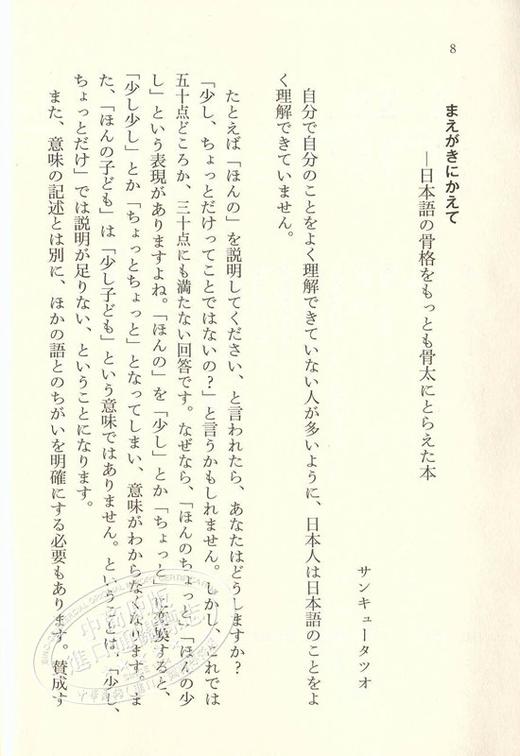 8
まえがきにかえて
―日本語の骨格をもっとも骨太にとらえた本
サンキュータツオ
自分で自分のことをよく理解できていない人が多いように、日本人は日本語のことをよ
く理解できていません。
たとえば「ほんの」を説明してください、と言われたら、あなたはどうしますか？
「少し、ちょっとだけってことではないの？」と言うかもしれません。しかし、これでは
五十点どころか、三十点にも満たない回答です。なぜなら、「ほんのちょっと」「ほんの少
し」という表現がありますよね。「ほんの」を「少し」とか「ちょっと」に変換すると、
「少し少し」とか「ちょっとちょっと」となってしまい、意味がわからなくなります。ま
た、「ほんの子ども」は「少し子ども」という意味ではありません。ということは、「少し、
ちょっとだけ」では説明が足りない、ということになります。
また、意味の記述とは別に、ほかの語とのちがいを明確にする必要もあります。賛成す